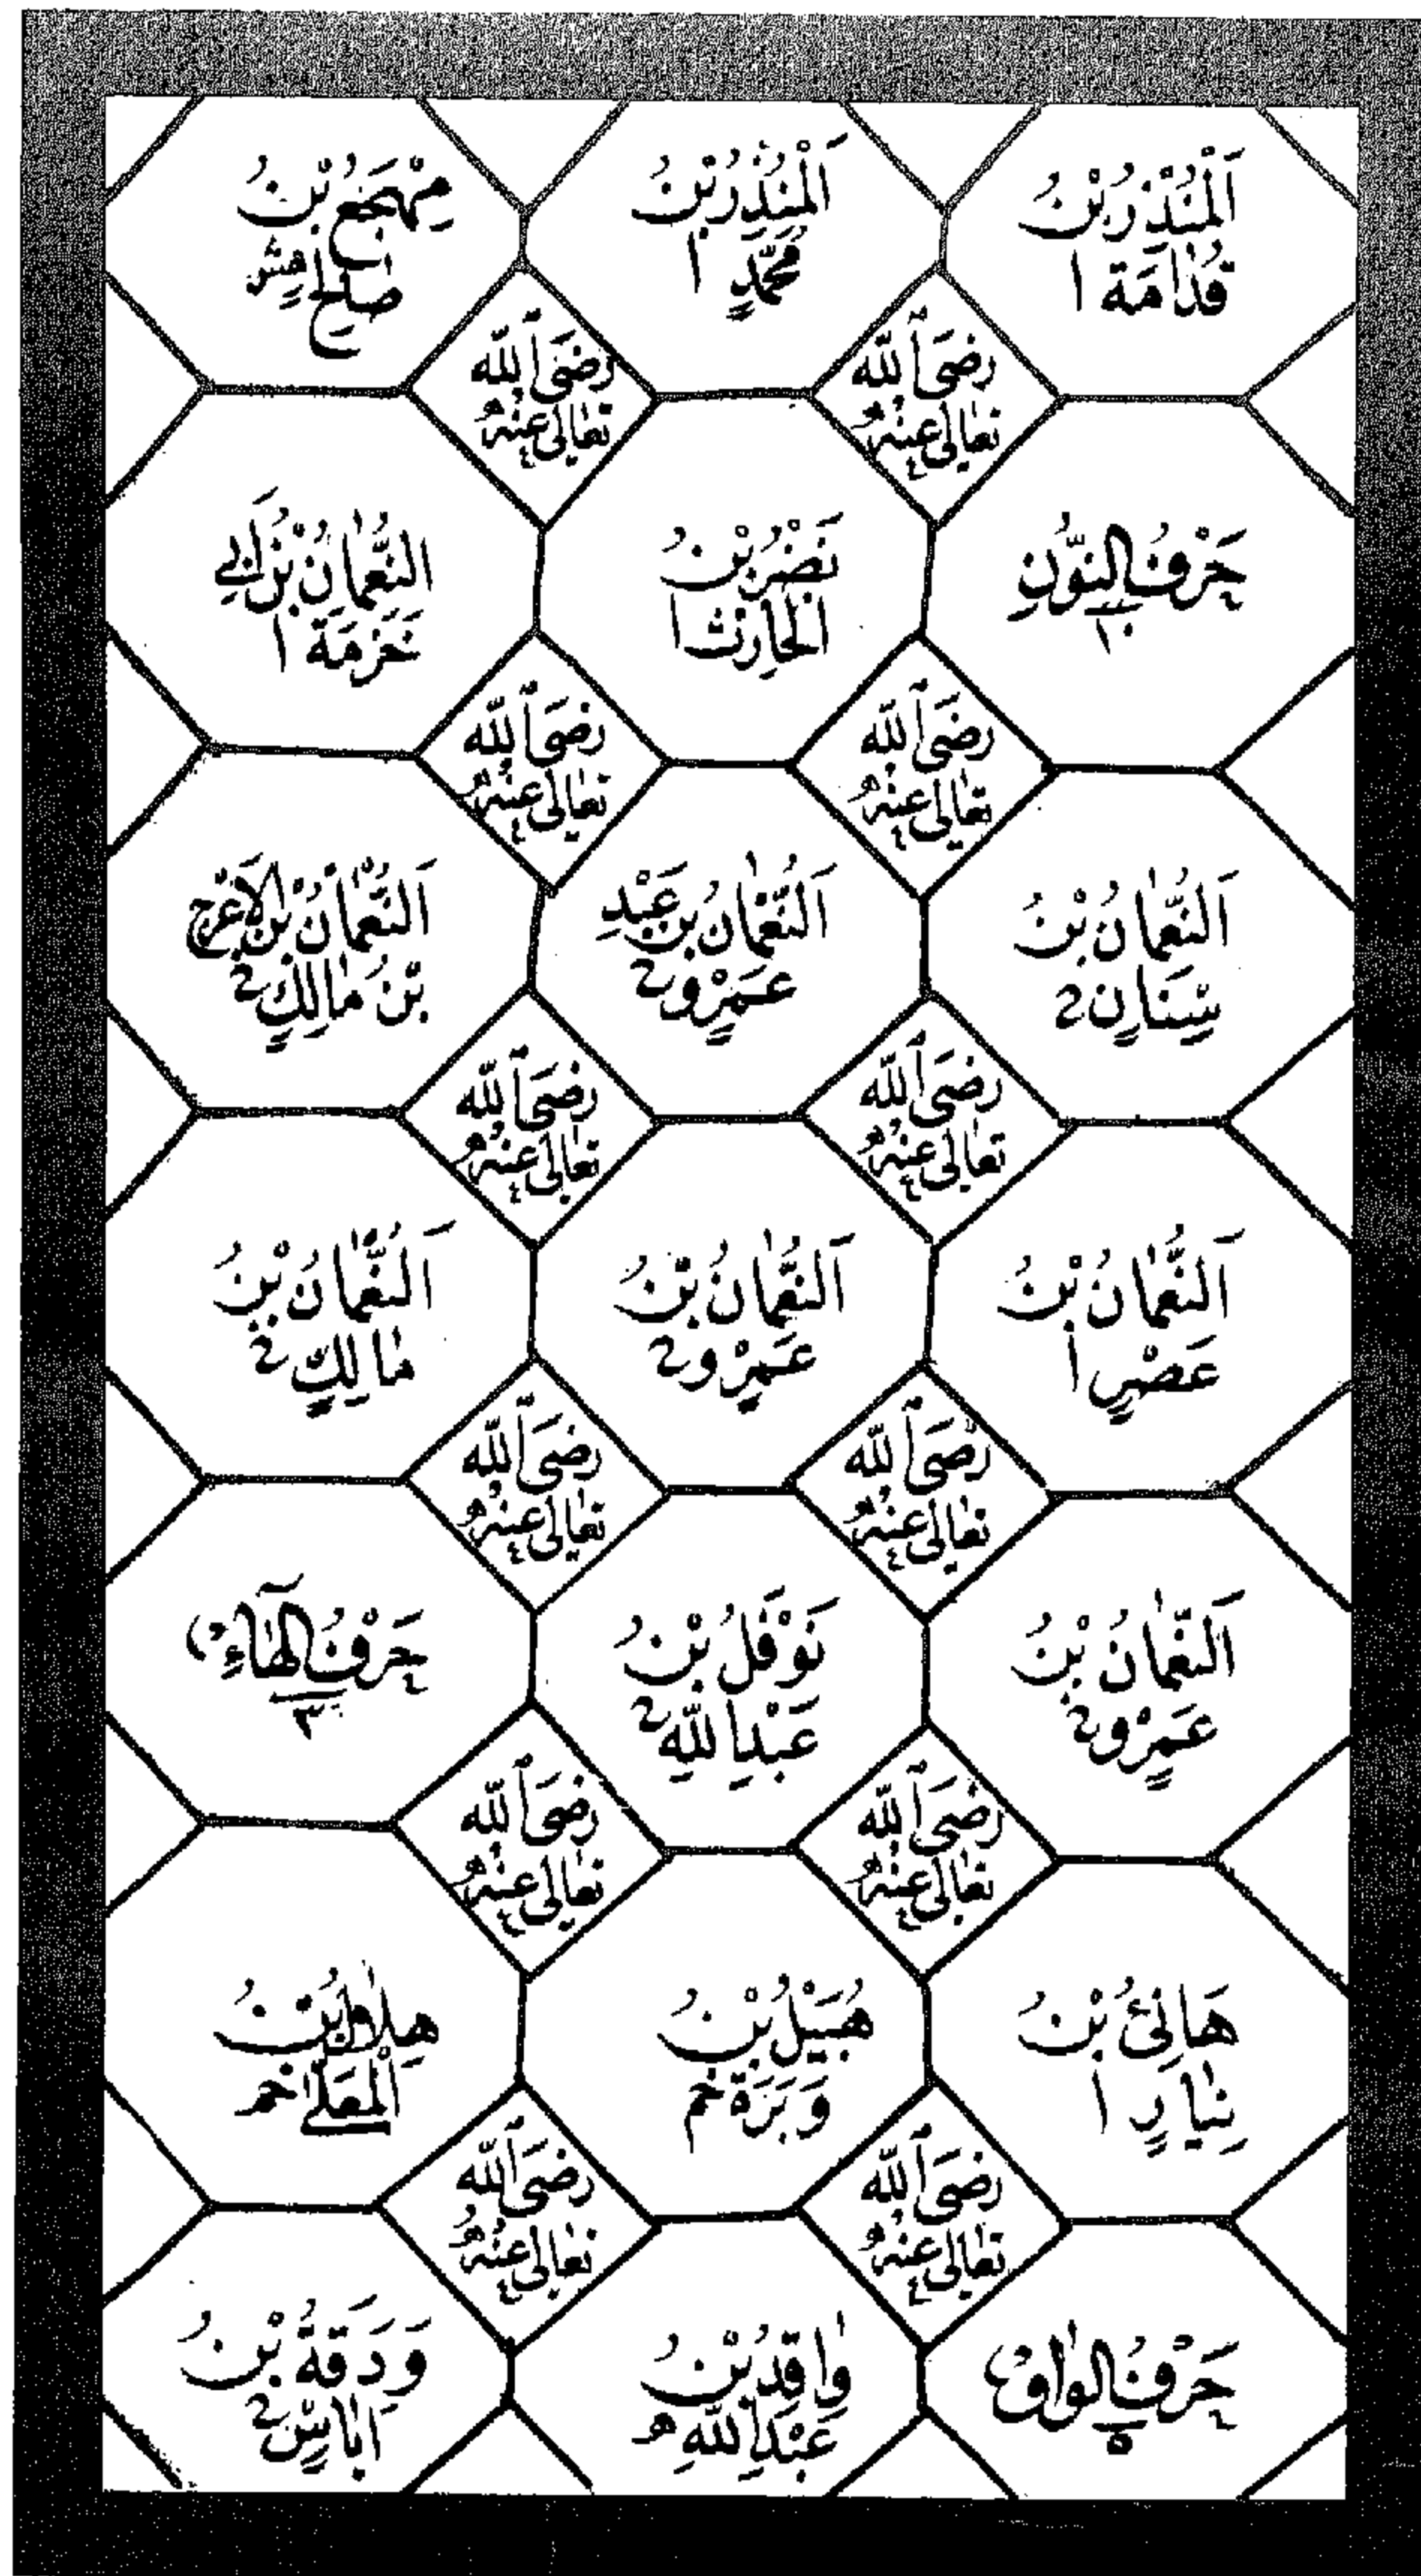 اَلْمُنْذِرُ بْنُ
قُدَامَةَ ا
اَلْمُنْذِرُ بْنُ
مُحَمَّدٍ ا
مِهْجَعُ بْنُ
صَالِحٍ هش
رَضِيَ اللّٰه
تَعَالٰى عَنْهُ
رَضِيَ اللّٰه
تَعَالٰى عَنْهُ
حَرْفُ النُّوْنِ
١٠
نَضْرُ بْنُ
الْحَارِثِ ا
النُّعْمَانُ بْنُ اَبِي
خَزَمَةَ ا
رَضِيَ اللّٰه
تَعَالٰى عَنْهُ
رَضِيَ اللّٰه
تَعَالٰى عَنْهُ
اَلنُّعْمَانُ بْنُ
سِنَانٍ 2
اَلنُّعْمَانُ بْنُ عَبْدِ
عَمْرٍو 2
اَلنُّعْمَانُ بْنُ الْاَعْرَجِ
بْنُ مَالِكٍ 2
رَضِيَ اللّٰه
تَعَالٰى عَنْهُ
رَضِيَ اللّٰه
تَعَالٰى عَنْهُ
اَلنُّعْمَانُ بْنُ
عَصْرٍ ا
اَلنُّعْمَانُ بْنُ
عَمْرٍو 2
اَلنُّعْمَانُ بْنُ
مَالِكٍ 2
رَضِيَ اللّٰه
تَعَالٰى عَنْهُ
رَضِيَ اللّٰه
تَعَالٰى عَنْهُ
اَلنُّعْمَانُ بْنُ
عَمْرٍو 2
نَوْفَلُ بْنُ
عَبْدِ اللّٰهِ 2
حَرْفُ الْهَاءِ
٣
رَضِيَ اللّٰه
تَعَالٰى عَنْهُ
رَضِيَ اللّٰه
تَعَالٰى عَنْهُ
هَانِئُ بْنُ
نِيَارٍ ا
هُبَيْلُ بْنُ
وَبَرَةَ خم
هِلَالُ بْنُ
الْمُعَلّٰى خم
رَضِيَ اللّٰه
تَعَالٰى عَنْهُ
رَضِيَ اللّٰه
تَعَالٰى عَنْهُ
حَرْفُ الْوَاوِ
٥
وَاقِدُ بْنُ
عَبْدِ اللّٰهِ هـ
وَدَقَةُ بْنُ
اَيَاسٍ 2